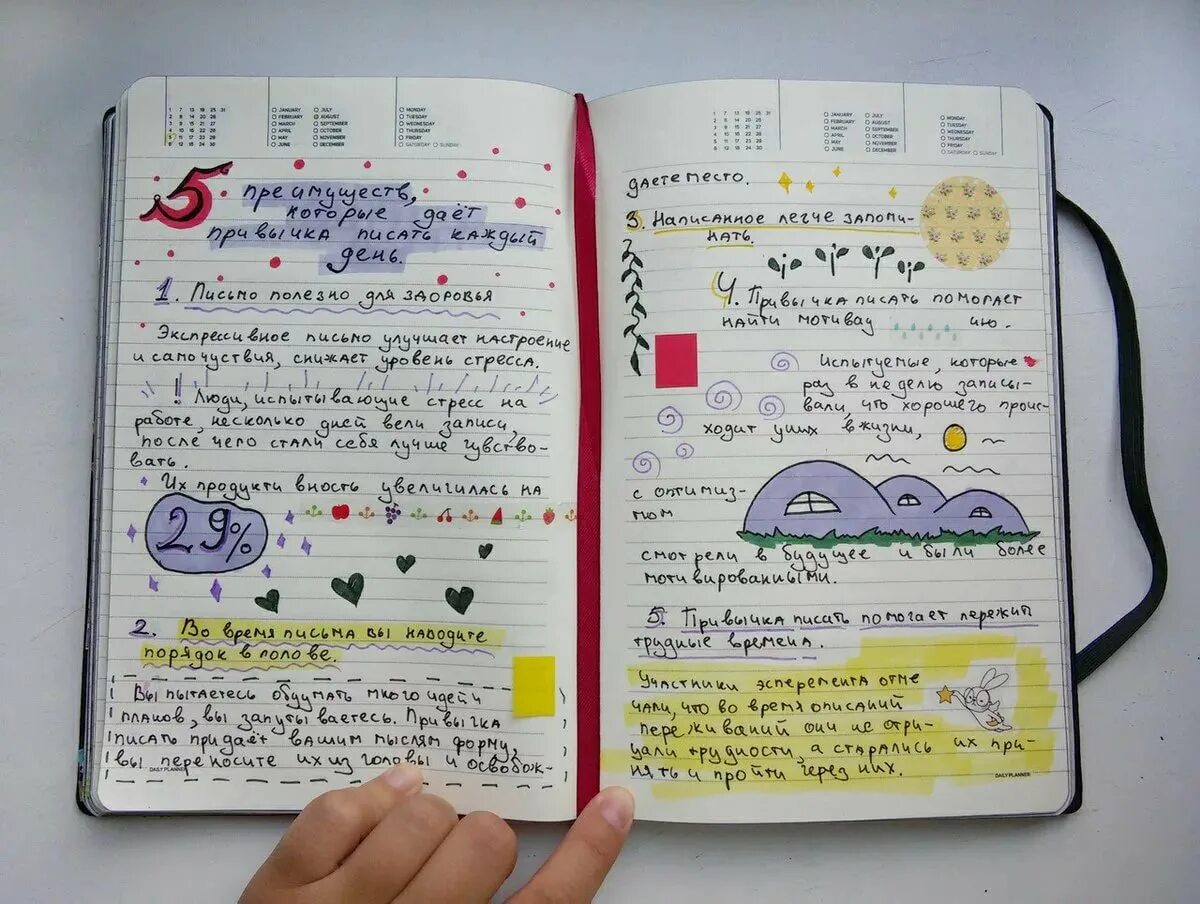 1 7 13 19 25 31
2 8 14 20 26
3 9 15 21 27
4 10 16 22 28
5 11 17 23 29
6 12 18 24 30
JANUARY JULY
FEBRUARY AUGUST
MARCH SEPTEMBER
APRIL OCTOBER
MAY NOVEMBER
JUNE DECEMBER
MONDAY
TUESDAY
WEDNESDAY
THURSDAY
FRIDAY
SATURDAY SUNDAY
5 преимуществ,
которые даёт
привычка писать каждый
день.
1. Письмо полезно для здоровья
Экспрессивное письмо улучшает настроение
и самочуствия, снижает уровень стресса.
! Люди, испытывающие стресс на
работе, несколько дней вели записи,
после чего стали себя лучше чувство-
вать.
Их продуктивность увеличилась на
29%
2. Во время письма вы наводите
порядок в голове.
Вы пытаетесь обдумать много идей и
планов, вы запутываетесь. Привычка
писать придаёт вашим мыслям форму,
вы переносите их из головы и освобож-
DAILY PLANNER
1 7 13 19 25 31
2 8 14 20 26
3 9 15 21 27
4 10 16 22 28
5 11 17 23 29
6 12 18 24 30
JANUARY JULY
FEBRUARY AUGUST
MARCH SEPTEMBER
APRIL OCTOBER
MAY NOVEMBER
JUNE DECEMBER
MONDAY
TUESDAY
WEDNESDAY
THURSDAY
FRIDAY
SATURDAY SUNDAY
даете место.
3. Написанное легче запоми-
нать.
4. Привычка писать помогает
найти мотивац ию.
Испытуемые, которые
раз в неделю записы-
вали, что хорошего проис-
ходит у них в жизни,
с оптимиз-
мом
смотрели в будущее и были более
мотивированными.
5. Привычка писать помогает пережить
трудные времена.
Участники эсперемента отме
чали, что во время описаний
переживаний они не отри-
цали трудности, а старались их при-
нять и пройти через них.
DAILY PLANNER